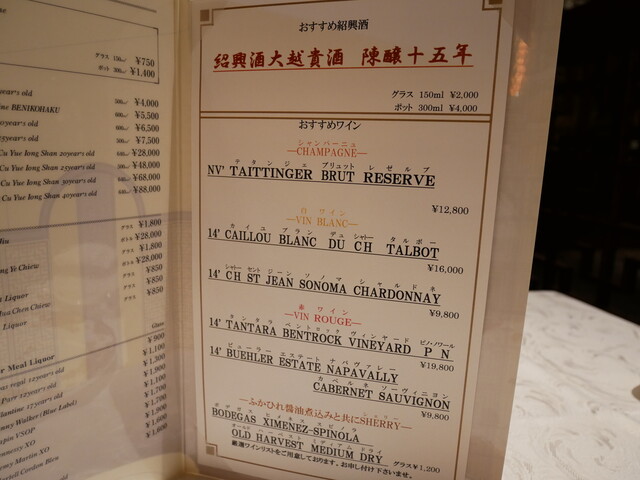 グラス 150㎖ ¥750
ポット 300㎖ ¥1,400
year's old 500㎖ ¥4,000
BENIKOHAKU 600㎖ ¥5,500
year's old ¥6,500
year's old 500㎖ ¥7,500
Cu Yue Iong Shan 20year's old ¥28,000
Cu Yue Iong Shan 25year's old ¥48,000
Cu Yue Iong Shan 30year's old 640㎖ ¥68,000
Cu Yue Iong Shan 40year's old 640㎖ ¥88,000
グラス ¥1,800
ボトル ¥28,000
グラス ¥1,800
ボトル ¥28,000
グラス ¥850
Ye Chiew グラス ¥850
Liquor グラス ¥850
Hua Chen Chiew
Liquor
Glass
¥900
¥1,100
Meal Liquor ¥1,300
regal 12year's old ¥1,100
Parr 12year's old ¥1,300
17year's old ¥1,700
Walker (Blue Label)
VSOP
XO
Martin XO
Martell Cordon Bleu
おすすめ紹興酒
紹興酒大越貴酒 陳醸十五年
グラス 150ml ¥2,000
ポット 300ml ¥4,000
おすすめワイン
シャンパーニュ
―CHAMPAGNE―
テタンジェ ブリュット レゼルブ
NV' TAITTINGER BRUT RESERVE
¥12,800
白 ワイン
―VIN BLANC―
カイユ ブラン デュ シャトー タルボー
14' CAILLOU BLANC DU CH TALBOT
¥16,000
シャトー セント ジーン ソノマ シャルドネ
14' CH ST JEAN SONOMA CHARDONNAY
¥9,800
赤 ワイン
―VIN ROUGE―
タンタラ ベントロック ヴィンヤード ピノ・ノワール
14' TANTARA BENTROCK VINEYARD P N
¥19,800
ビューラー エステート ナパヴァレー
14' BUEHLER ESTATE NAPAVALLY
カベルネ ソーヴィニヨン
CABERNET SAUVIGNON
¥9,800
―ふかひれ醤油煮込みと共にSHERRY―
ボデガス ヒメネス スピノラ
BODEGAS XIMENEZ-SPINOLA
オールド ハーベスト ミディアム ドライ
OLD HARVEST MEDIUM DRY グラス¥1,200
厳選ワインリストをご用意しております。お申し付け下さいませ。